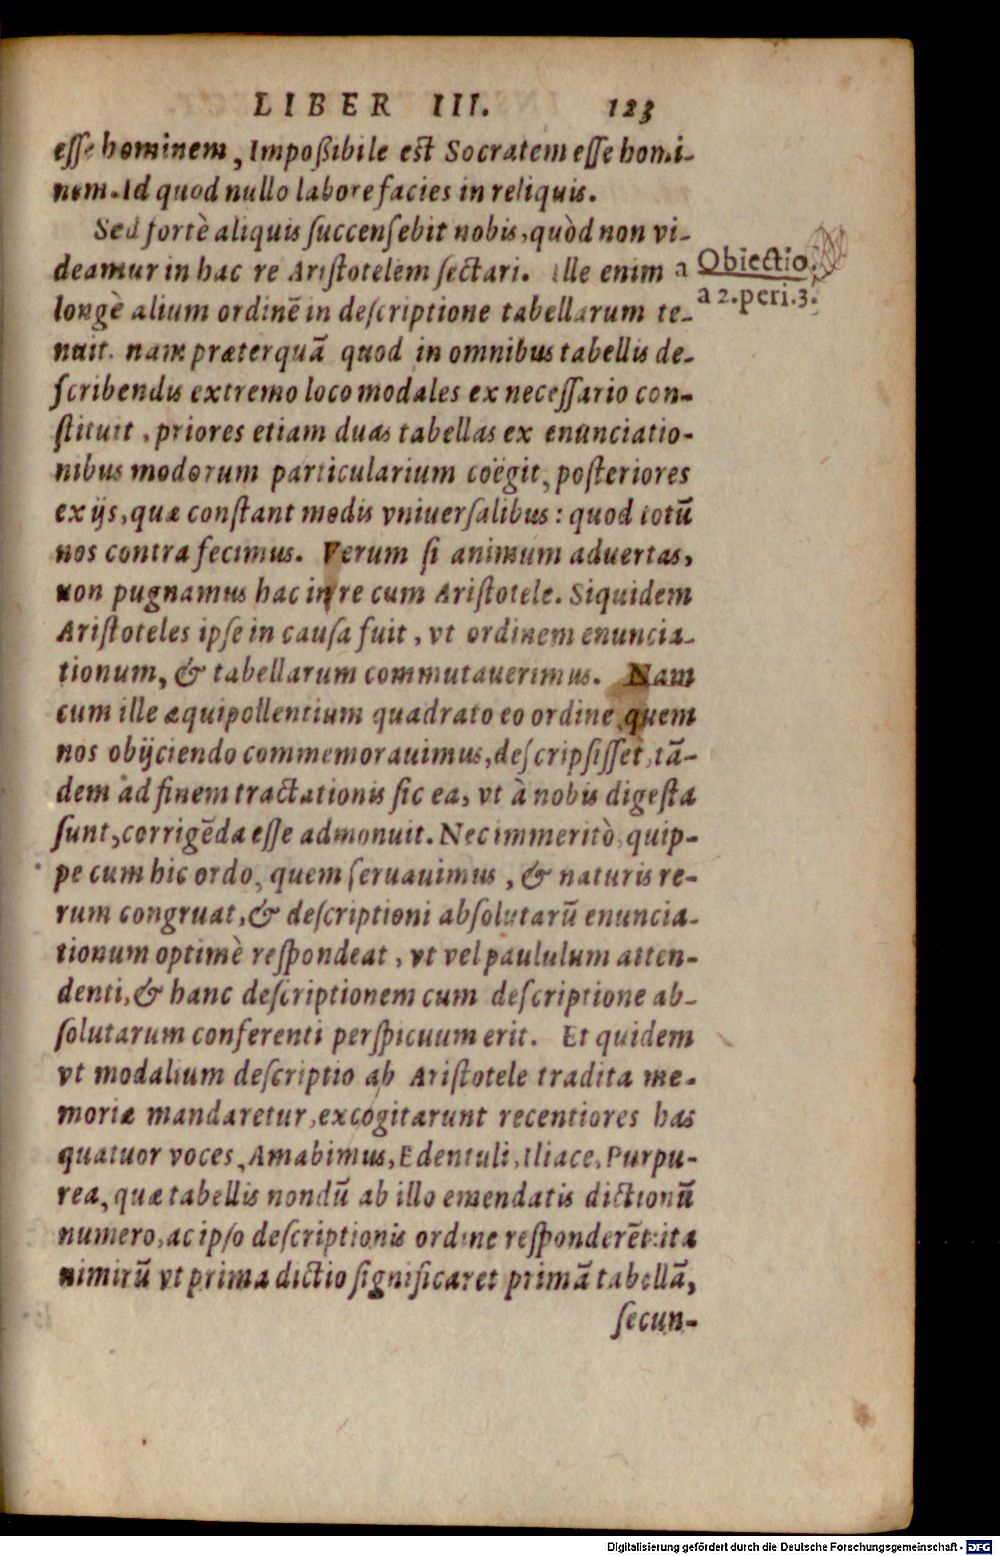 LIBER III. 123
eſſe hominem, Impoßibile est Socratem eſſe homi-
nem. Id quod nullo labore facies in reliquis.
Sed fortè aliquis ſuccenſebit nobis, quòd non vi-
deamur in hac re Ariſtotelem ſectari. Ille enim a
Obiectio.
a 2. peri. 3.
longè alium ordinē in deſcriptione tabellarum te-
nuit. nam præterquā quod in omnibus tabellis de-
ſcribendis extremo loco modales ex neceſſario con-
ſtituit, priores etiam duas tabellas ex enunciatio-
nibus modorum particularium coëgit, poſteriores
ex ijs, quæ conſtant modis vniuerſalibus: quod totū
nos contra fecimus. Verum ſi animum aduertas,
non pugnamus hac in re cum Ariſtotele. Siquidem
Ariſtoteles ipſe in cauſa fuit, vt ordinem enuncia-
tionum, & tabellarum commutauerimus. Nam
cum ille æquipollentium quadrato eo ordine, quem
nos obijciendo commemorauimus, deſcripſiſſet, tā-
dem ad finem tractationis ſic ea, vt à nobis digeſta
ſunt, corrigēda eſſe admonuit. Nec immeritò, quip-
pe cum hic ordo, quem ſeruauimus, & naturis re-
rum congruat, & deſcriptioni abſolutarū enuncia-
tionum optimè reſpondeat, vt vel paululum atten-
denti, & hanc deſcriptionem cum deſcriptione ab-
ſolutarum conferenti perſpicuum erit. Et quidem
vt modalium deſcriptio ab Ariſtotele tradita me-
moriæ mandaretur, excogitarunt recentiores has
quatuor voces, Amabimus, Edentuli, Iliace, Purpu-
rea, quæ tabellis nondū ab illo emendatis dictionū
numero, ac ipſo deſcriptionis ordine reſponderēt: ita
nimirū vt prima dictio ſignificaret primā tabellā,
ſecun-
Digitalisierung gefördert durch die Deutsche Forschungsgemeinschaft - DFG